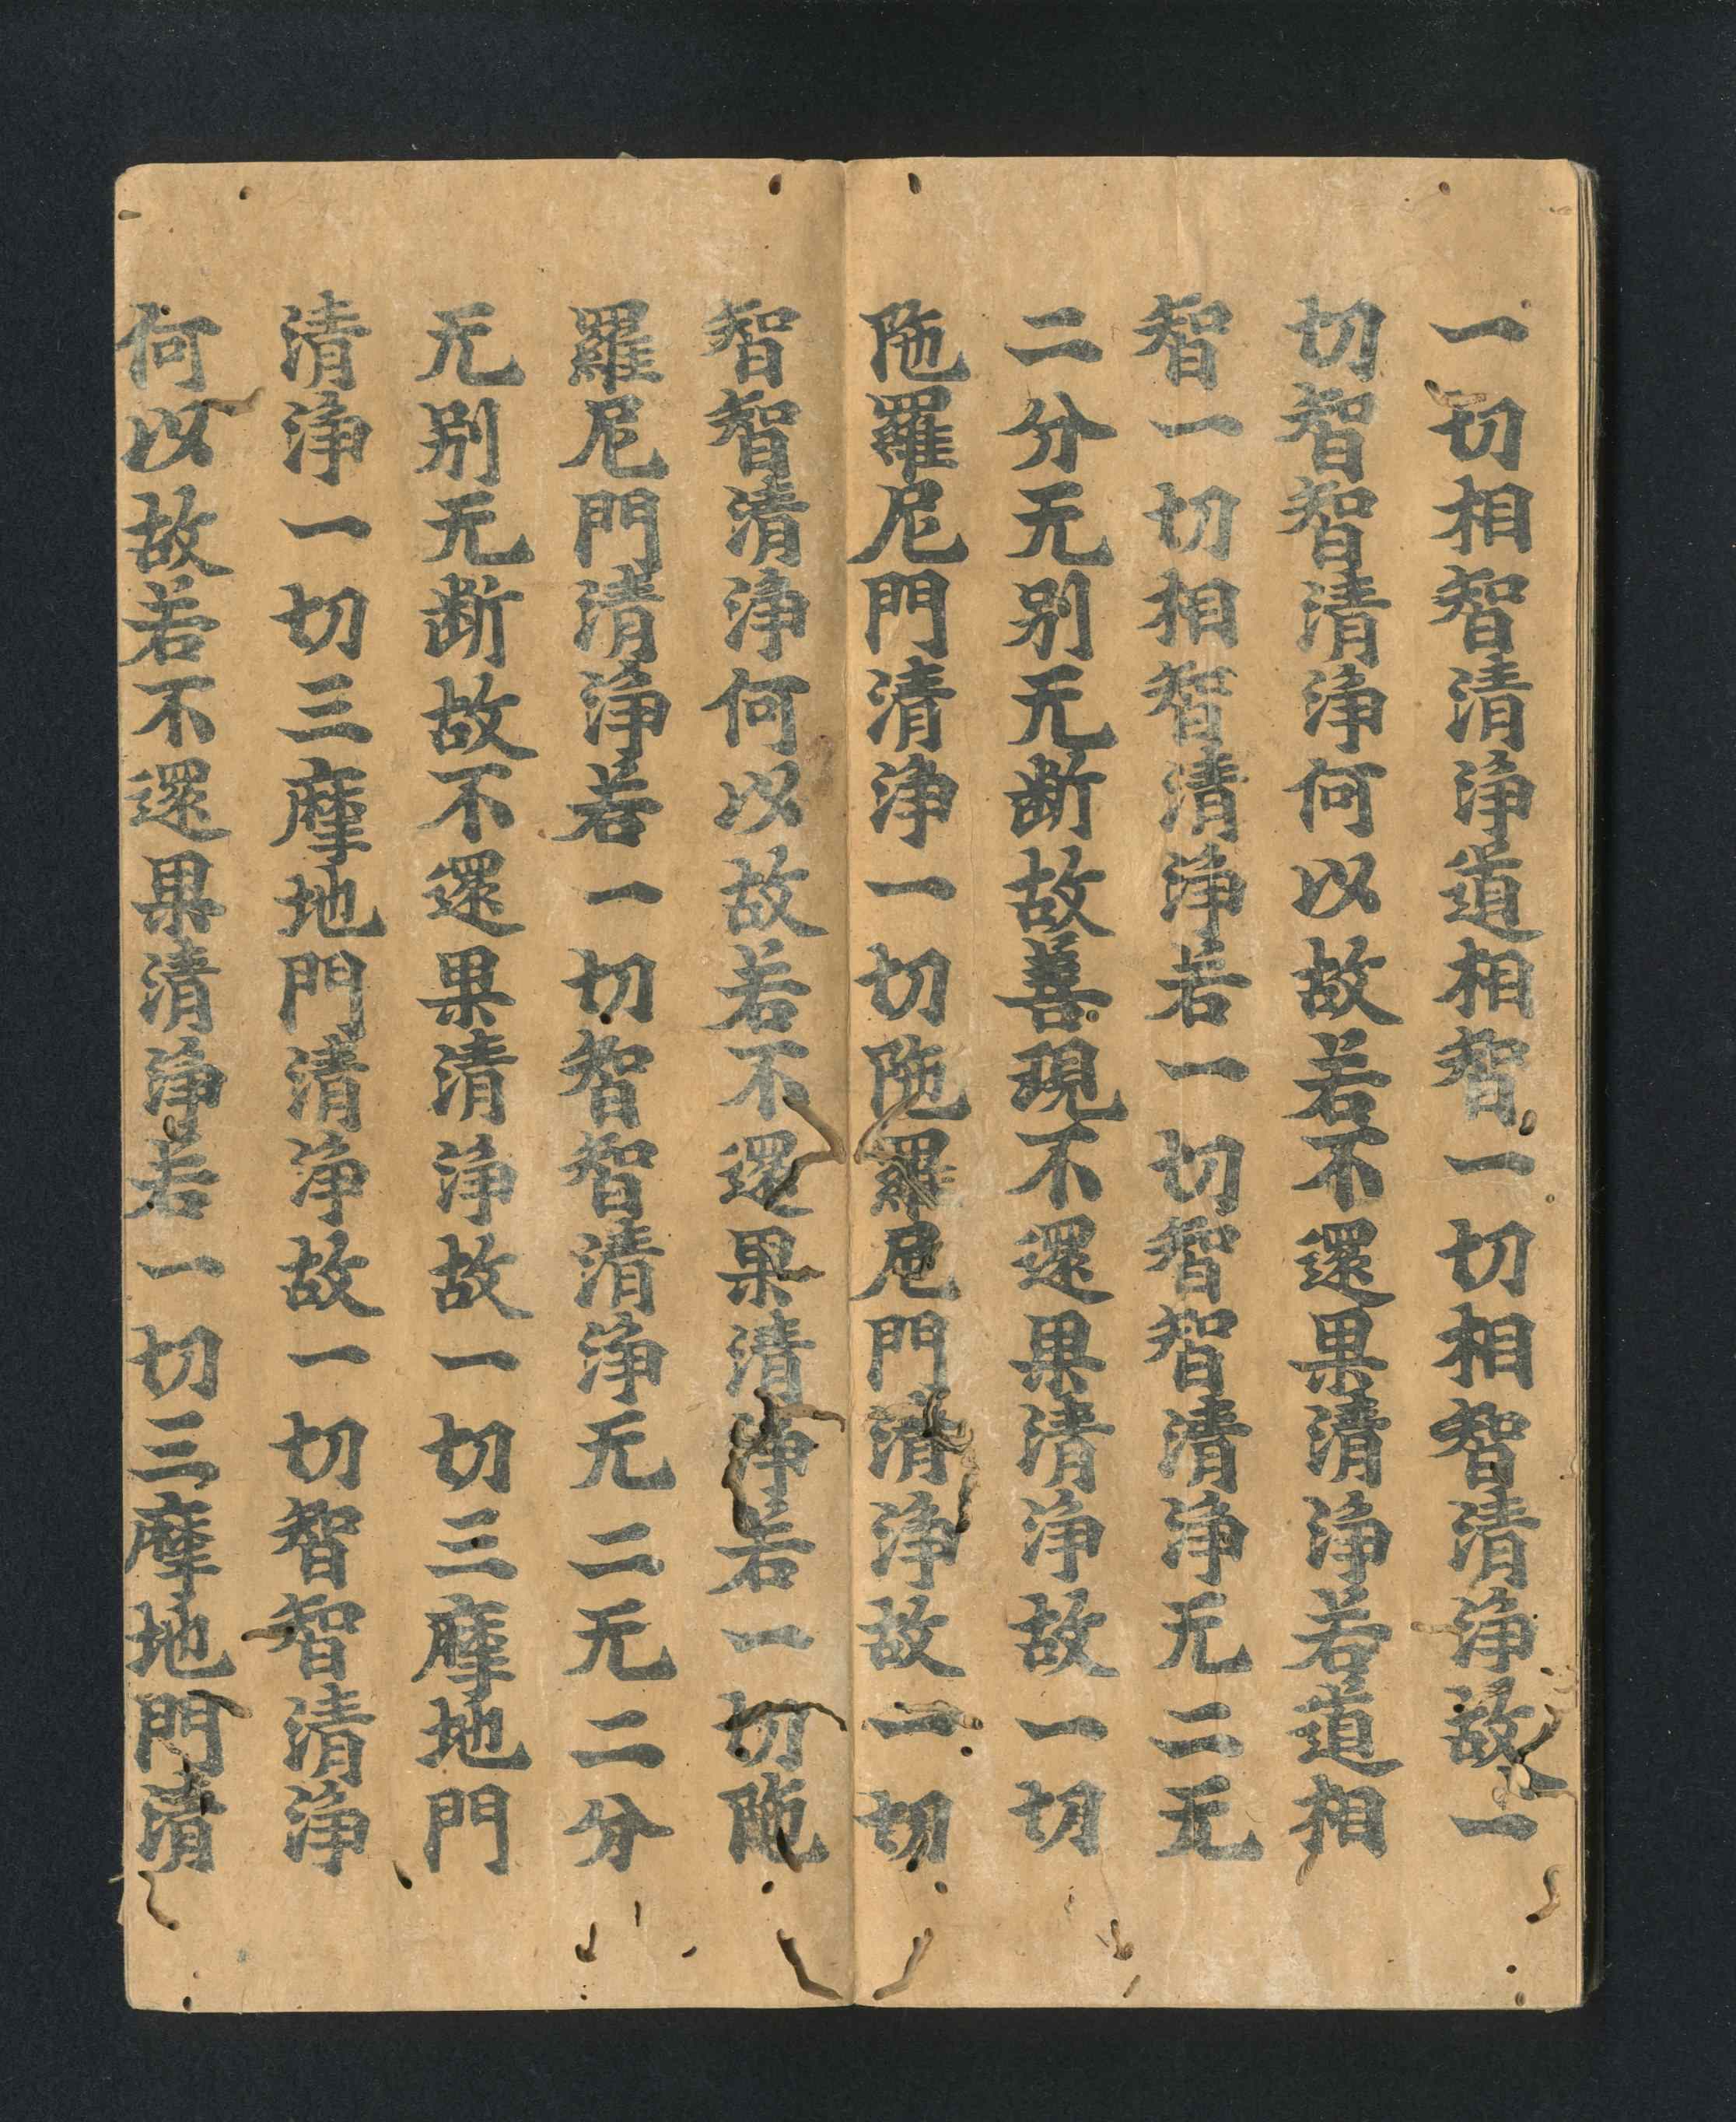 一切相智清淨道相智一切相智清淨故一
切智智清淨何以故若不還果清淨若道相
智一切相智清淨若一切智智清淨无二无
二分无别无断故善現不還果清淨故一切
陁羅尼門清淨一切陁羅尼門清淨故一切
智智清淨何以故若不還果清淨若一切陁
羅尼門清淨若一切智智清淨无二无二分
无别无断故不還果清淨故一切三摩地門
清淨一切三摩地門清淨故一切智智清淨
何以故若不還果清淨若一切三摩地門清